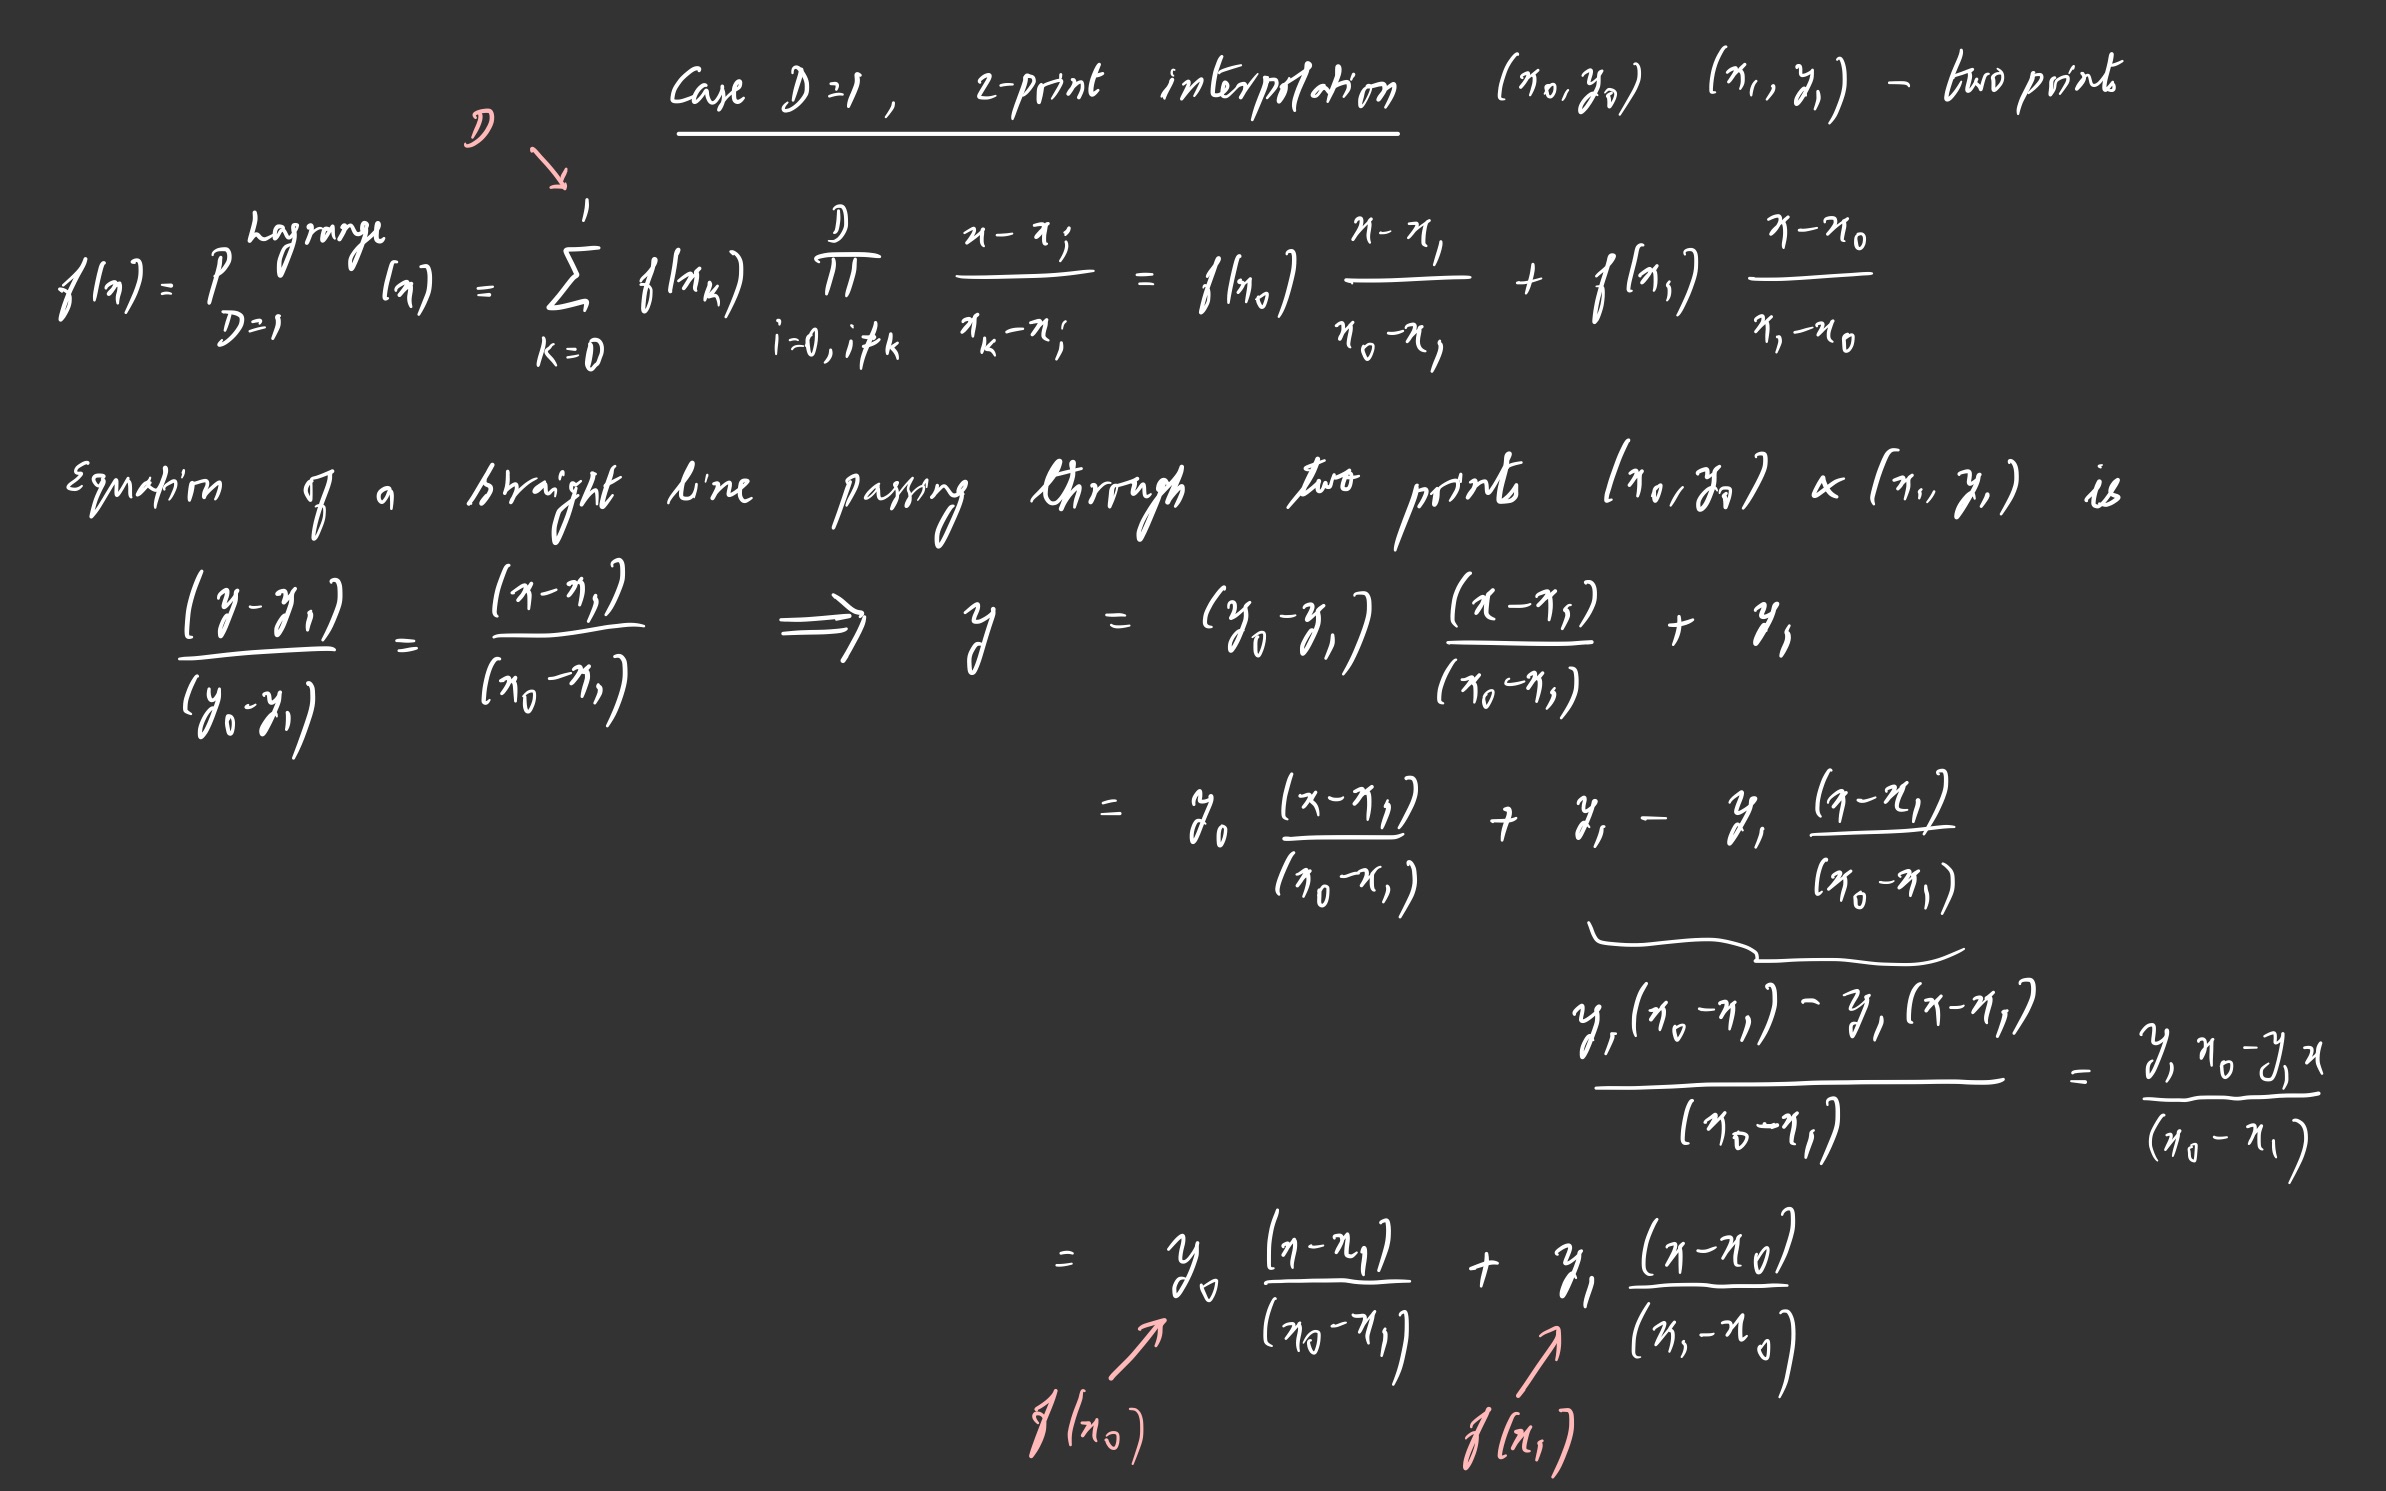 Case D=1, 2-point interpolation (x₀, y₀) (x₁, y₁) – two points
D
f(x) = P_{D=1}^{Lagrange}(x) = \sum_{K=0}^{1} f(x_k) \prod_{i=0, i≠k}^{D} \frac{x - x_i}{x_k - x_i} = f(x₀) \frac{x - x₁}{x₀ - x₁} + f(x₁) \frac{x - x₀}{x₁ - x₀}
Equation of a straight line passing through two points (x₀, y₀) & (x₁, y₁) is
\frac{(y - y₁)}{(y₀ - y₁)} = \frac{(x - x₁)}{(x₀ - x₁)} ⟹ y = (y₀ - y₁) \frac{(x - x₁)}{(x₀ - x₁)} + y₁
= y₀ \frac{(x - x₁)}{(x₀ - x₁)} + y₁ - y₁ \frac{(x - x₁)}{(x₀ - x₁)}
\frac{y₁(x₀ - x₁) - y₁(x - x₁)}{(x₀ - x₁)} = \frac{y₁ x₀ - y₁ x}{(x₀ - x₁)}
= y₀ \frac{(x - x₁)}{(x₀ - x₁)} + y₁ \frac{(x - x₀)}{(x₁ - x₀)}
f(x₀) f(x₁)